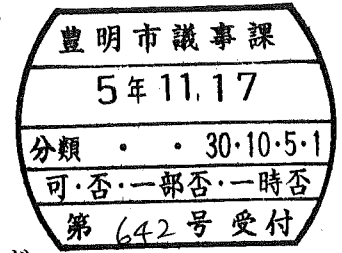 豊明市議事課
5年11.17
分類 ・ ・ 30・10・5・1
可・否・一部否・一時否
第 642 号 受付